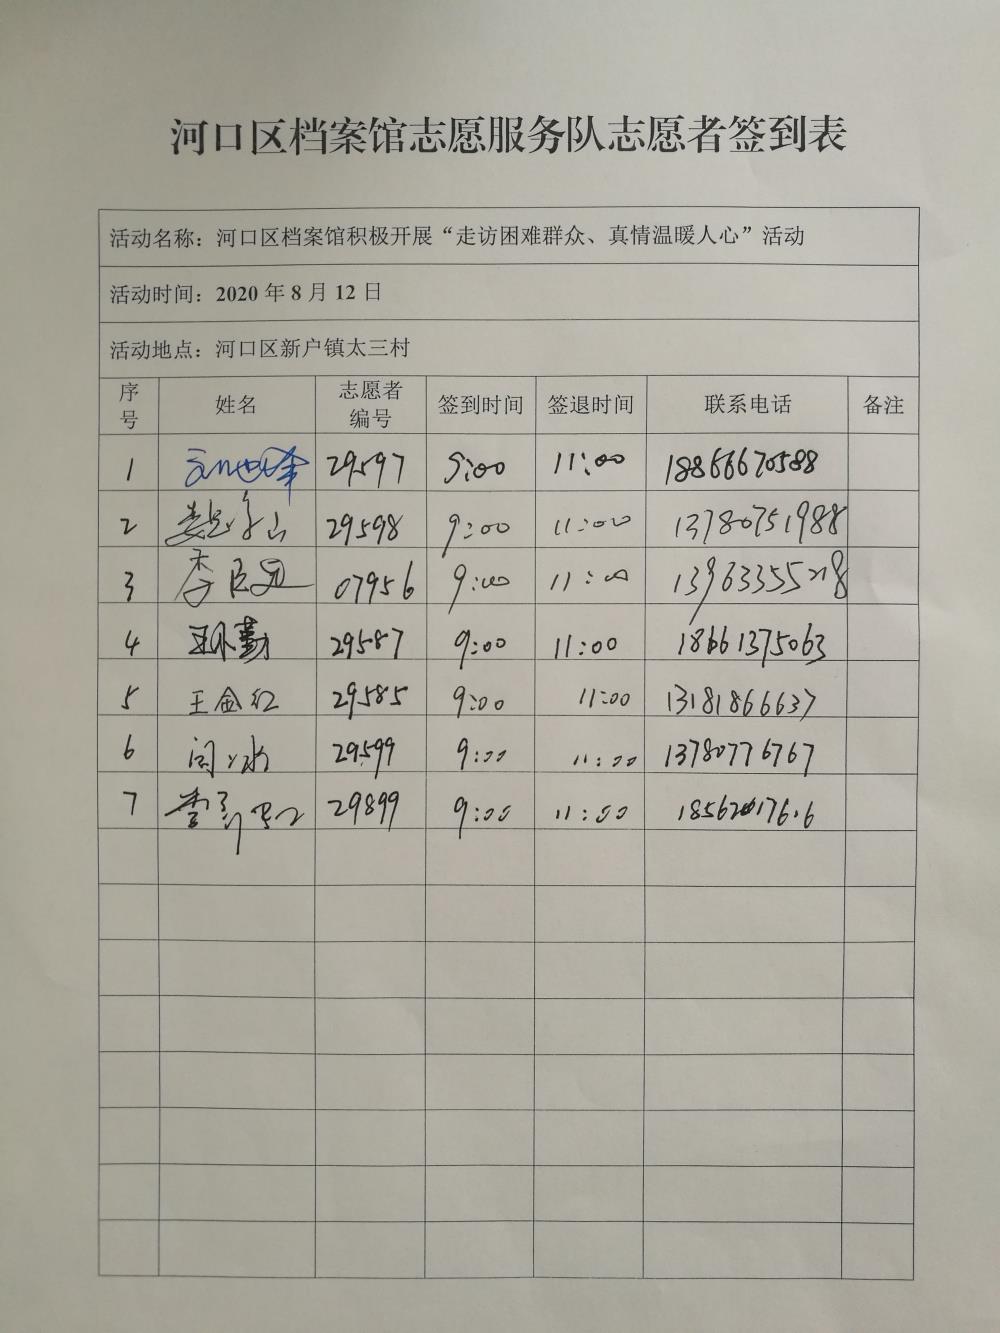 河口区档案馆志愿服务队志愿者签到表
活动名称：河口区档案馆积极开展“走访困难群众、真情温暖人心”活动
活动时间：2020 年 8 月 12 日
活动地点：河口区新户镇太三村
序号 姓名 志愿者编号 签到时间 签退时间 联系电话 备注
1 29597 9:00 11:00 18866670588
2 29598 9:00 11:00 13780751988
3 07956 9:00 11:00
4 29587 9:00 11:00 18661375063
5 王金红 29585 9:00 11:00 13181866637
6 29599 9:00 11:00 13780776767
7 29899 9:00 11:00